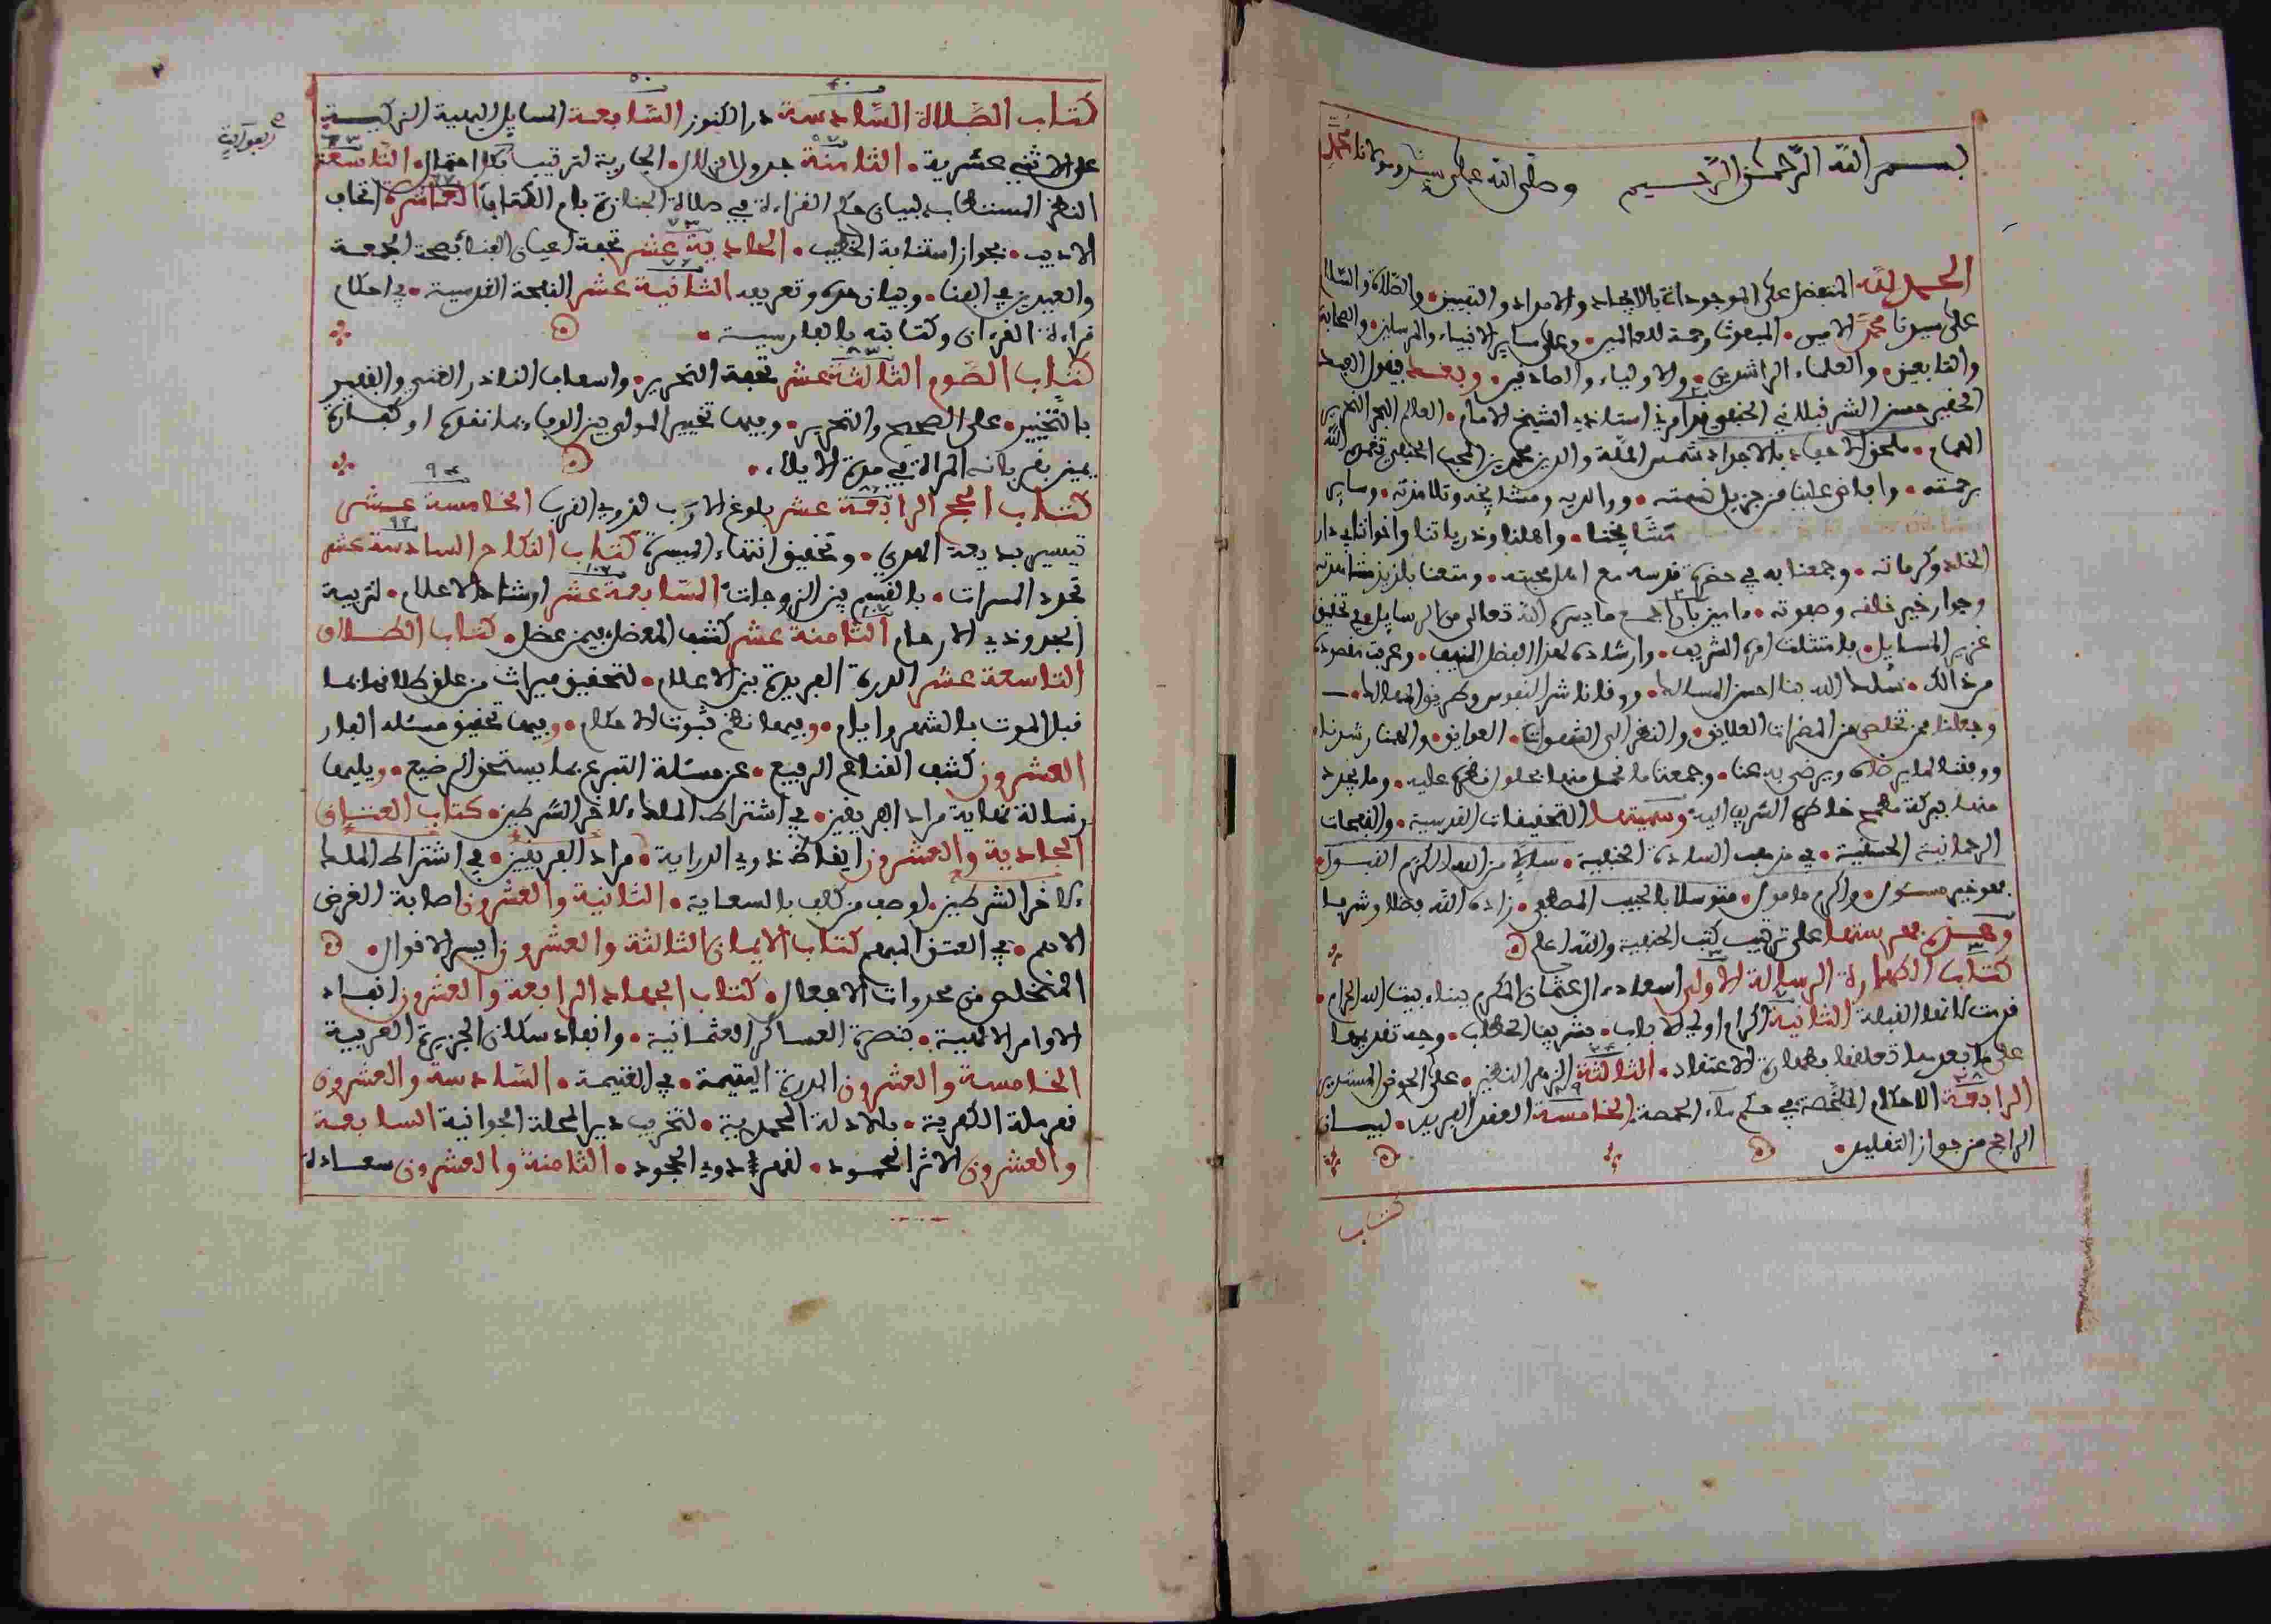 بسم الله الرحمن الرحيم وصلى الله على سيدنا ومولانا محمد
الحمد لله المتفضل على الموجودات بالايجاد والامداد والتبيين والصلاة والسلام
على سيدنا محمد الامين المبعوث رحمة للعالمين وعلى ساير الانبياء والمرسلين والصحابة
والتابعين والعلماء الراشدين والاولياء والصادقين وبعد فيقول العبد
الحقير حسن الشرنبلالي الحنفي قد امرني استاذي الشيخ الامام العالم البحر النحرير
الهمام ملحق الاحفاد بالاجداد شمس الملة والدين محمد المحب الحنفي تغمده الله
برحمته وافاض علينا من جزيل نعمته ووالديه ومشايخه وتلامذته وساير
مشايخنا واهلنا وذرياتنا واخواننا في دار
الخلد وكرماته وجمعنا به في حضرة قدسه مع اهل محبته ومتعنا بلذيذ مشاهدته
وجوار خير خلقه وصفوته بان اجمع ما يسره الله تعالى من الرسايل في تحقيق
غرير المسايل فامتثلت امره الشريف وارشاده لهذا الفضل المنيف وعرفت مقصوده
من ذالك سلك الله بنا احسن المسالك ووقانا شر النفوس وطريق المهالك
وجعلنا ممن تخلص من المضرات العلايق والنظر الى الشهوات العوايق والهمنا رشدنا
ووفقنا لما يرضاه ويرضى به عنا وجمعنا ما تحمل منها نحلو نظره عليه وما يجدد
منها ببركة مطمح خاطره الشريف اليه وسميتها التحقيقات القدسية والنفحات
الرحمانية الحسنية في مذهب السادة الحنفية سايلا من الله الكريم القبول
فهو خير مسئول واكرم مامول متوسلا بالحبيب المصطفى زاده الله فضلا وشرفا
وهذه فهرستها على ترتيب كتب الحنفية والله اعلم
كتاب الطهارة الرسالة الاولى اسعاد ءال عثمان المكرم ببناء بيت الله المحرم
قدمت لانها القبلة الثانية اكرام اولي الالباب بشريف الخطاب وجه تقديمها
على ما بعدها تعلقها بطهارة الاعتقاد الثالثة الزهر النضير على الحوض المستدير
الرابعة الاحكام الملخصة في حكم ماء الحمصة الخامسة العقد الفريد لبيان
الراجح من جواز التقليد
كتاب
كتاب الصلاة السادسة در الكنوز السابعة المسايل البهية الزكية
على الاثني عشرية الثامنة جدول الزلال الجارية لترتيب بكل احتمال التاسعة
النظر المستطاب لبيان حكم القراءة في صلاة الجنازة بام الكتاب العاشرة اتحاف
الاريب بجواز استنابة الخطيب الحادية عشر تحفة اعيان الغنا بصحة الجمعة
والعيدين في الفنا وبيان حده وتعريفه الثانية عشر النفحة القدسية في احكام
قراءة القرءان وكتابته بالفارسية
كتاب الصوم الثالثة عشر تحفة التحرير واسعاف الناذر الغني والفقير
بالتخيير على الصحيح والتحرير وفيها تخيير المولي بين الوفاء بما نفله او كفارة
يمين بقربانه المرأة في مدة الايلاء
كتاب الحج الرابعة عشر بلوغ الارب لذوي القرب الخامسة عشر
تيسير بديعة الهدي وتحقيق انتهاء الميسرة كتاب النكاح السادسة عشر
تجدد المسرات بالقسم بين الزوجات السابعة عشر ارشاد الاعلام لتربية
الجد وذوي الارحام الثامنة عشر كشف المعضل فيمن عضل كتاب الطلاق
التاسعة عشر الدرة الفريدة بين الاعلام لتحقيق ميراث من علق طلاقها بما
قبل الموت بالشهر وايام وفيها نظم ثبوت الاحكام وفيها تحقيق مسئلة الفار
العشرون كشف القناع الرفيع عن مسئلة التبرع بما يستحق الرضيع ويليها
رسالة نهاية مراد الفريقين في اشتراط الملك لاخر الشرطين كتاب العتاق
الحادية والعشرون ايقاظ ذوي الدراية مراد الفريقين في اشتراط الملك
لاخر الشرطين لوصف من كلف بالسعاية الثانية والعشرون اصابة الغرض
الاهم في العتق المبهم كتاب الايمان الثالثة والعشرون ايسر الاقوال
المتخلص من محدورات الافعال كتاب الجهاد الرابعة والعشرون انفاد
الاوامر الالهية بنصرة العساكر العثمانية وانقاد سكان الجزيرة العربية
الخامسة والعشرون الدرة اليتيمة في الغنيمة السادسة والعشرون
قهر ملة الكفرية بالادلة المحمدية لتخريب دير المحلة الجوانية السابعة
والعشرون الاثر المحمود لقهر ذوي الجحود الثامنة والعشرون سعادة